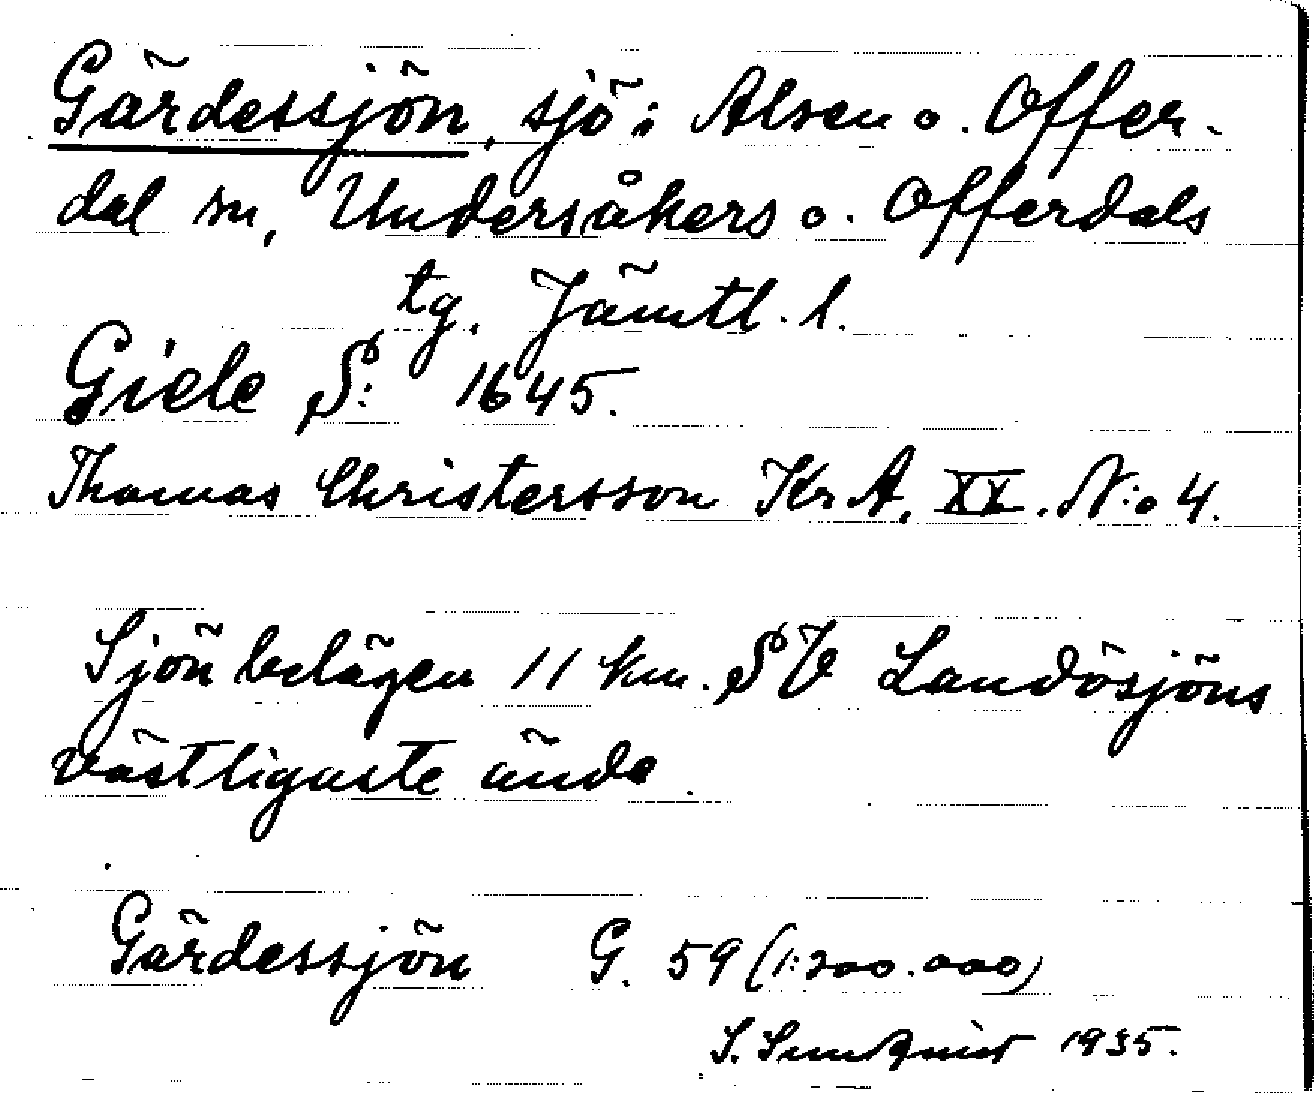 Gärdessjön, sjö i Alsen o. Offer-
dal sn, Undersåkers o. Offerdals
tg. Jämtl. l.
Giele S: 1645.
Thomas Christersson Kr A. XX. N:o 4.
Sjön belägen 11 km. SV Landösjöns
västligaste ände.
Gärdessjön G. 59 (1:200.000)
S. Sundquist 1935.